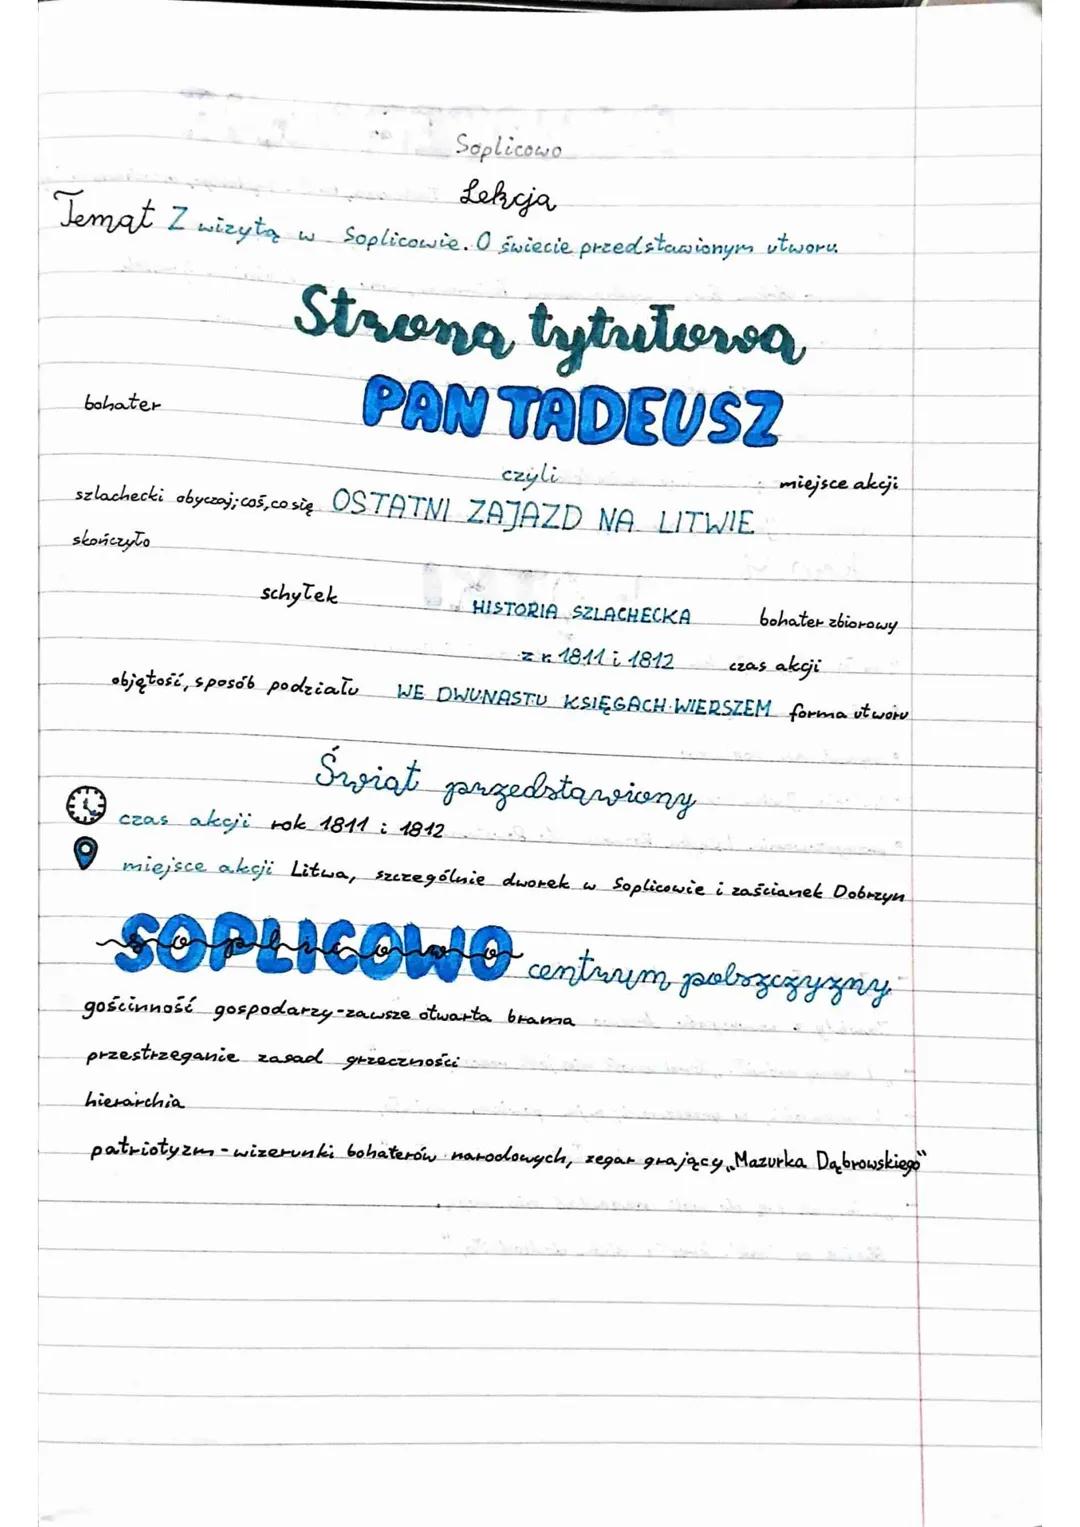 Soplicowo
Lekcja
Temat Z wizytą w Soplicowie. O świecie przedstawionym utworu.
Strona tytułowa
bohater PAN TADEUSZ
czyli miejsce akcji
szlachecki obyczaj; coś, co się OSTATNI ZAJAZD NA LITWIE
skończyło
schyłek HISTORIA SZLACHECKA bohater zbiorowy
z r. 1811 i 1812 czas akcji
objętość, sposób podziału WE DWUNASTU KSIĘGACH WIERSZEM forma utworu
Świat przedstawiony
czas akcji rok 1811 i 1812
miejsce akcji Litwa, szczególnie dworek w Soplicowie i zaścianek Dobrzyn
SOPLICOWO soplicowo centrum polszczyzny
gościnność gospodarzy - zawsze otwarta brama
przestrzeganie zasad grzeczności
hierarchia
patriotyzm - wizerunki bohaterów narodowych, zegar grający „Mazurka Dąbrowskiego"